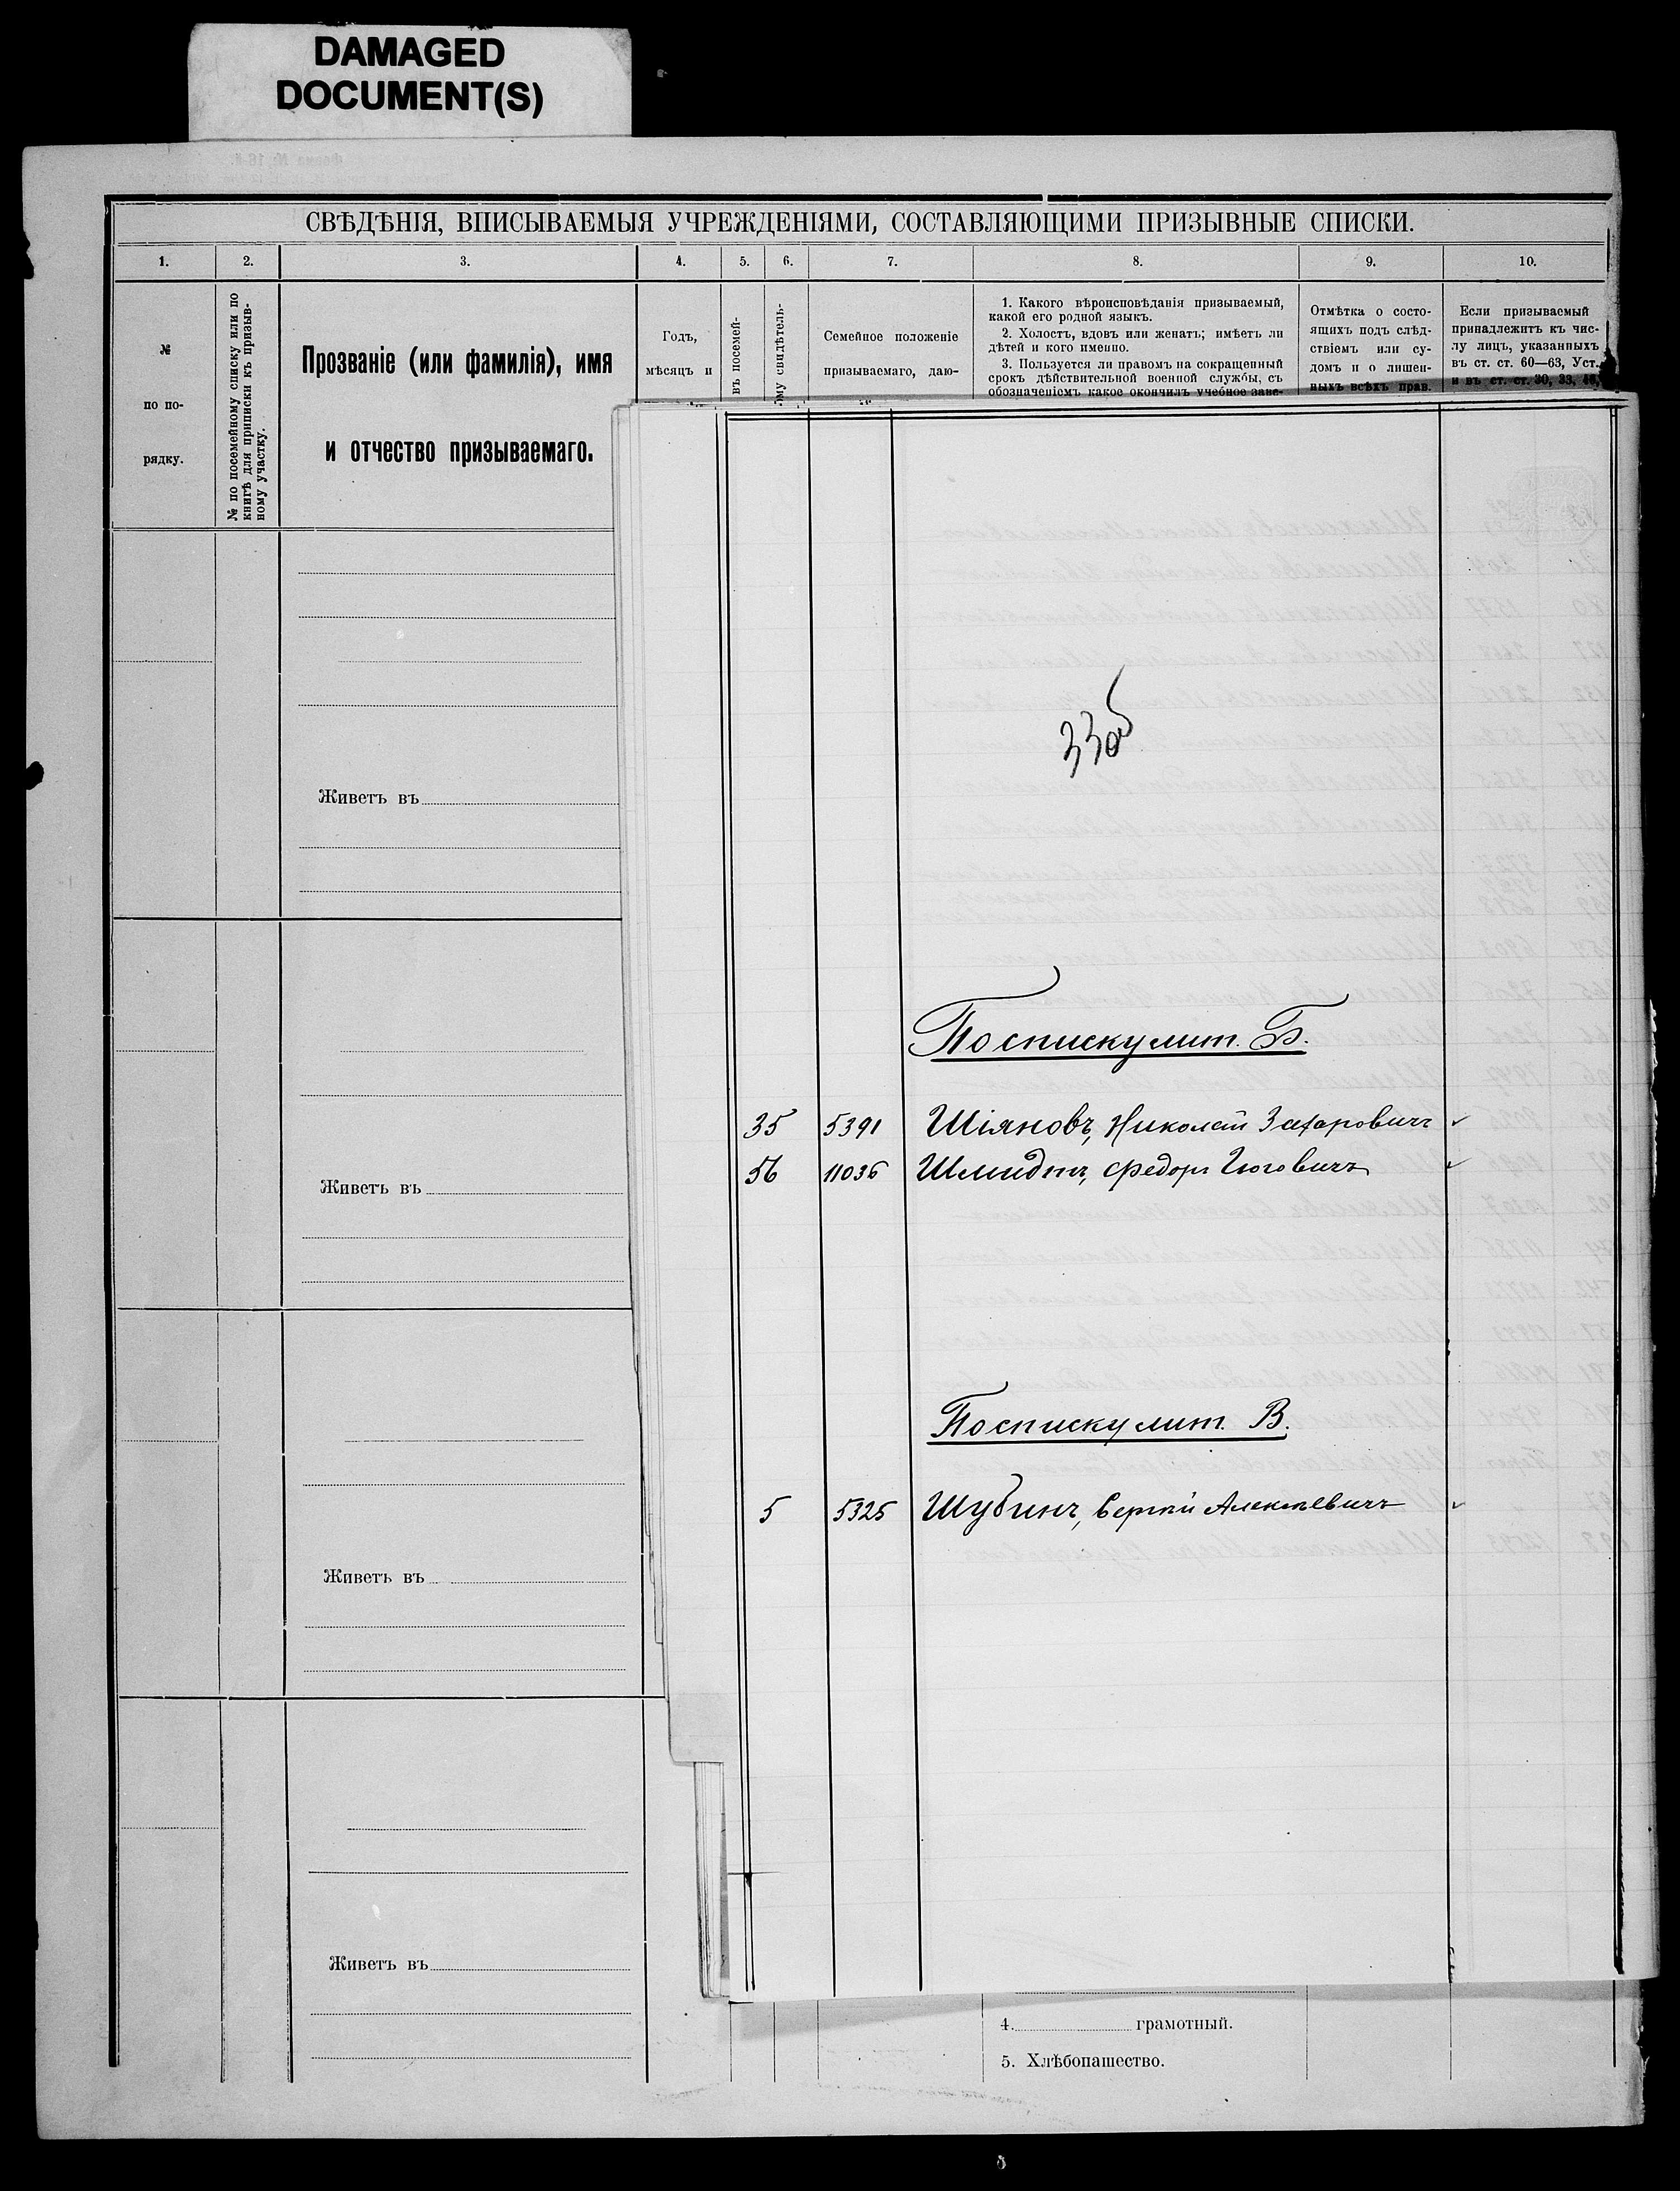 DAMAGED
DOCUMENT(S)
СВѢДѢНІЯ, ВПИСЫВАЕМЫЯ УЧРЕЖДЕНІЯМИ, СОСТАВЛЯЮЩИМИ ПРИЗЫВНЫЕ СПИСКИ.
1. 2. 3. 4. 5. 6. 7. 8. 9. 10.
№
по по-
рядку.
№ по посемейному списку или по
книгѣ для приписки къ призыв-
ному участку.
Прозваніе (или фамилія), имя
и отчество призываемаго.
Годъ,
мѣсяцъ и
въ посемей-
ому свидѣтель-
Семейное положеніе
призываемаго, даю-
1. Какого вѣроисповѣданія призываемый,
какой его родной языкъ.
2. Холостъ, вдовъ или женатъ; имѣетъ ли
дѣтей и кого именно.
3. Пользуется ли правомъ на сокращенный
срокъ дѣйствительной военной службы, съ
обозначеніемъ какое окончилъ учебное заве-
Отмѣтка о состо-
ящихъ подъ слѣд-
ствіемъ или су-
домъ и о лишен-
ныхъ всѣхъ прав.
Если призываемый
принадлежитъ къ чис-
лу лицъ, указанныхъ
въ ст. ст. 60—63, Уст.
и въ ст. ст. 30, 33, 46,
33об
Живетъ въ
По списку лит. Б.
35 5391 Шіяновъ, Николай Захаровичъ
56 11036 Шмидтъ, Федоръ Гюговичъ
Живетъ въ
По списку лит. В.
5 5325 Шубинъ, Сергѣй Алексѣевичъ
Живетъ въ
Живетъ въ
4. грамотный.
5. Хлѣбопашество.